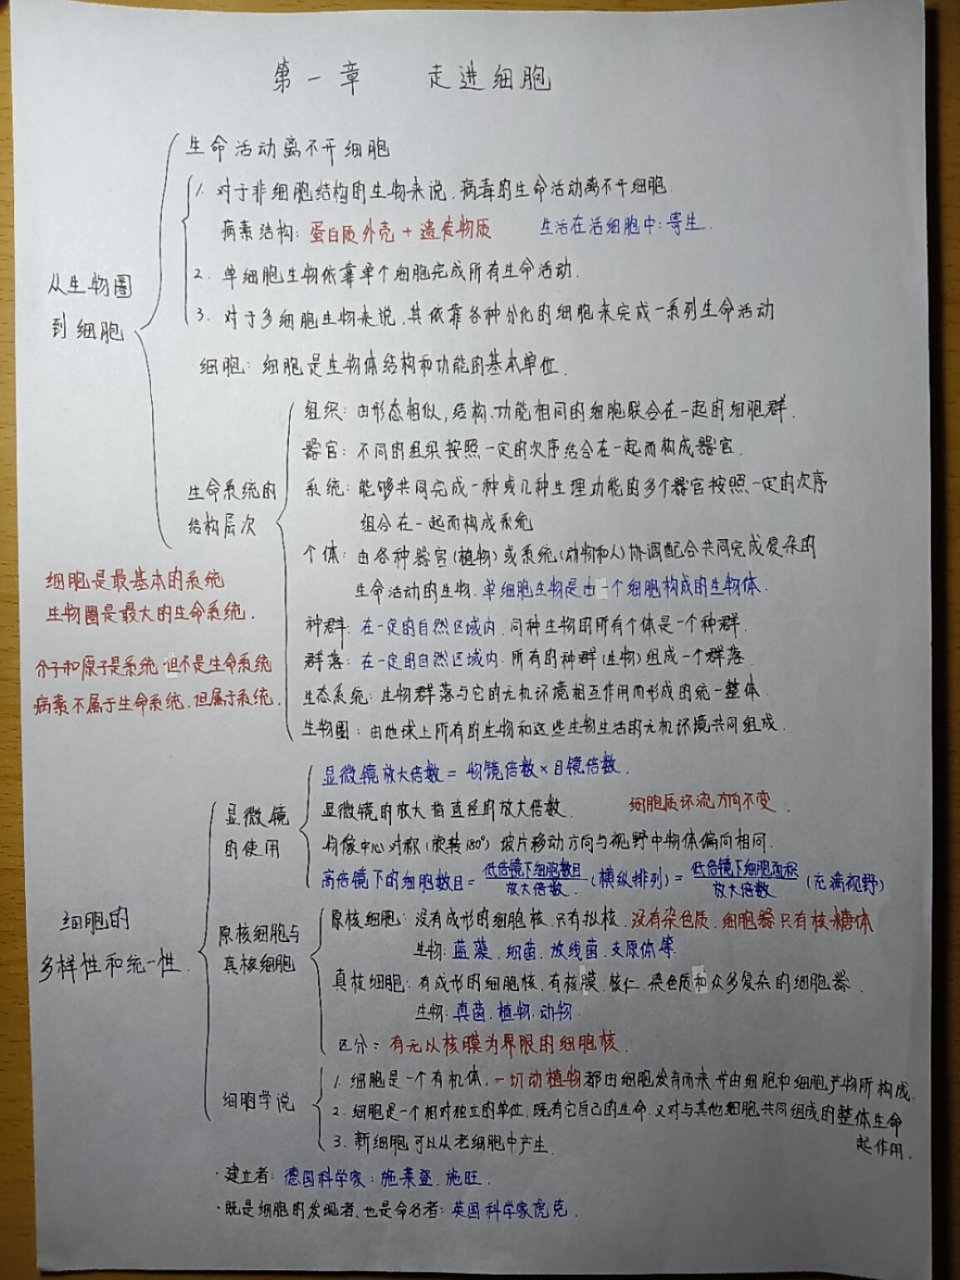 第一章 走进细胞
生命活动离不开细胞
1. 对于非细胞结构的生物来说,病毒的生命活动离不开细胞.
病毒结构: 蛋白质外壳 + 遗传物质 生活在活细胞中: 寄生.
2. 单细胞生物依靠单个细胞完成所有生命活动.
从生物圈
到细胞
3. 对于多细胞生物来说,其依靠各种分化的细胞来完成一系列生命活动
细胞: 细胞是生物体结构和功能的基本单位.
组织: 由形态相似,结构、功能相同的细胞联合在一起的细胞群.
器官: 不同的组织按照一定的次序结合在一起而构成器官.
生命系统的
结构层次
系统: 能够共同完成一种或几种生理功能的多个器官按照一定的次序
组合在一起而构成系统
个体: 由各种器官(植物)或系统(动物和人)协调配合共同完成复杂的
生命活动的生物.单细胞生物是由一个细胞构成的生物体.
细胞是最基本的系统
生物圈是最大的生命系统.
种群: 在一定的自然区域内.同种生物的所有个体是一个种群.
群落: 在一定的自然区域内.所有的种群(生物)组成一个群落.
分子和原子是系统,但不是生命系统
病毒不属于生命系统.但属于系统.
生态系统: 生物群落与它的无机环境相互作用而形成的统一整体.
生物圈: 由地球上所有的生物和这些生物生活的无机环境共同组成.
显微镜
的使用
显微镜放大倍数 = 物镜倍数×目镜倍数.
显微镜的放大指直径的放大倍数. 细胞质环流方向不变.
物像中心对称(旋转180°) 玻片移动方向与视野中物体偏向相同.
高倍镜下的细胞数目 = 低倍镜下细胞数目/放大倍数.(横纵排列) = 低倍镜下细胞面积/放大倍数 (充满视野)
细胞的
多样性和统一性.
原核细胞与
真核细胞
原核细胞: 没有成形的细胞核.只有拟核.没有染色质.细胞器只有核糖体
生物: 蓝藻.细菌.放线菌.支原体等.
真核细胞: 有成形的细胞核.有核膜.核仁.染色质和众多复杂的细胞器.
生物: 真菌.植物.动物.
区分: 有无以核膜为界限的细胞核.
细胞学说
1. 细胞是一个有机体,一切动植物都由细胞发育而来.并由细胞和细胞产物所构成.
2. 细胞是一个相对独立的单位.既有它自己的生命.又对与其他细胞共同组成的整体生命
起作用.
3. 新细胞可以从老细胞中产生.
·建立者: 德国科学家: 施莱登.施旺.
·既是细胞的发现者、也是命名者: 英国科学家虎克.